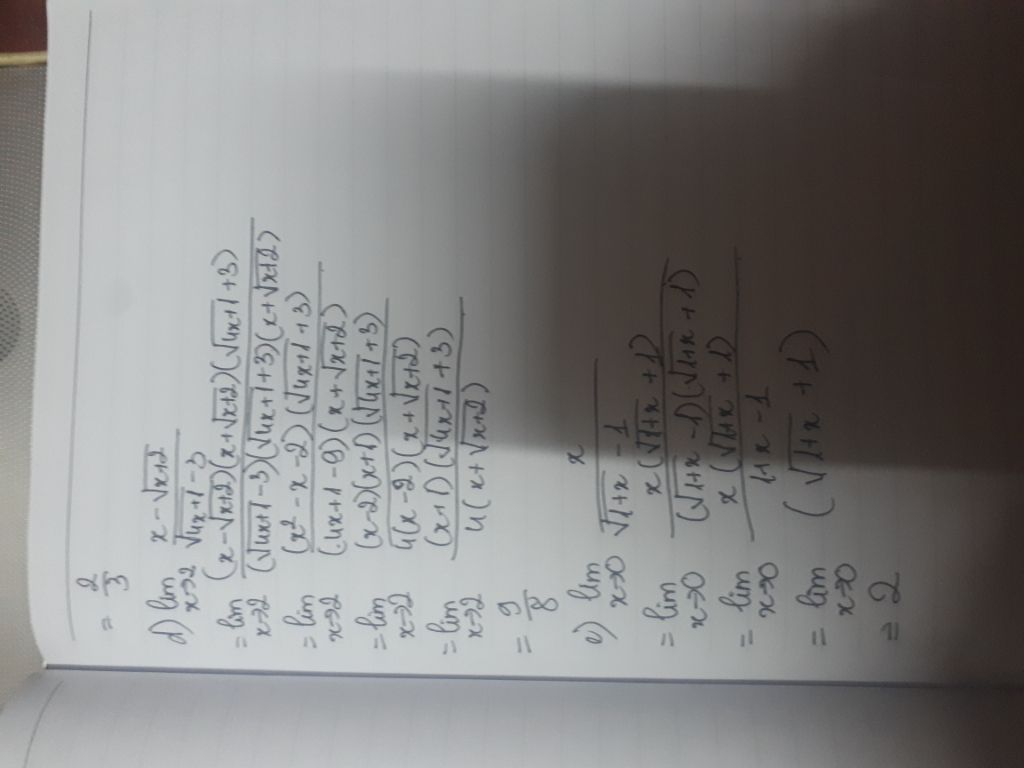 = 2/3
d) lim x→2 (x - √(x+2))/(√(4x+1) - 3)
= lim x→2 ((x - √(x+2))(x + √(x+2))(√(4x+1) + 3))/((√(4x+1) - 3)(√(4x+1) + 3)(x + √(x+2)))
= lim x→2 ((x² - x - 2)(√(4x+1) + 3))/((4x+1 - 9)(x + √(x+2)))
= lim x→2 ((x-2)(x+1)(√(4x+1) + 3))/(4(x-2)(x + √(x+2)))
= lim x→2 ((x+1)(√(4x+1) + 3))/(4(x + √(x+2)))
= 9/8
e) lim x→0 x/(√(1+x) - 1)
= lim x→0 (x(√(1+x) + 1))/((√(1+x) - 1)(√(1+x) + 1))
= lim x→0 (x(√(1+x) + 1))/(1+x - 1)
= lim x→0 (√(1+x) + 1)
= 2